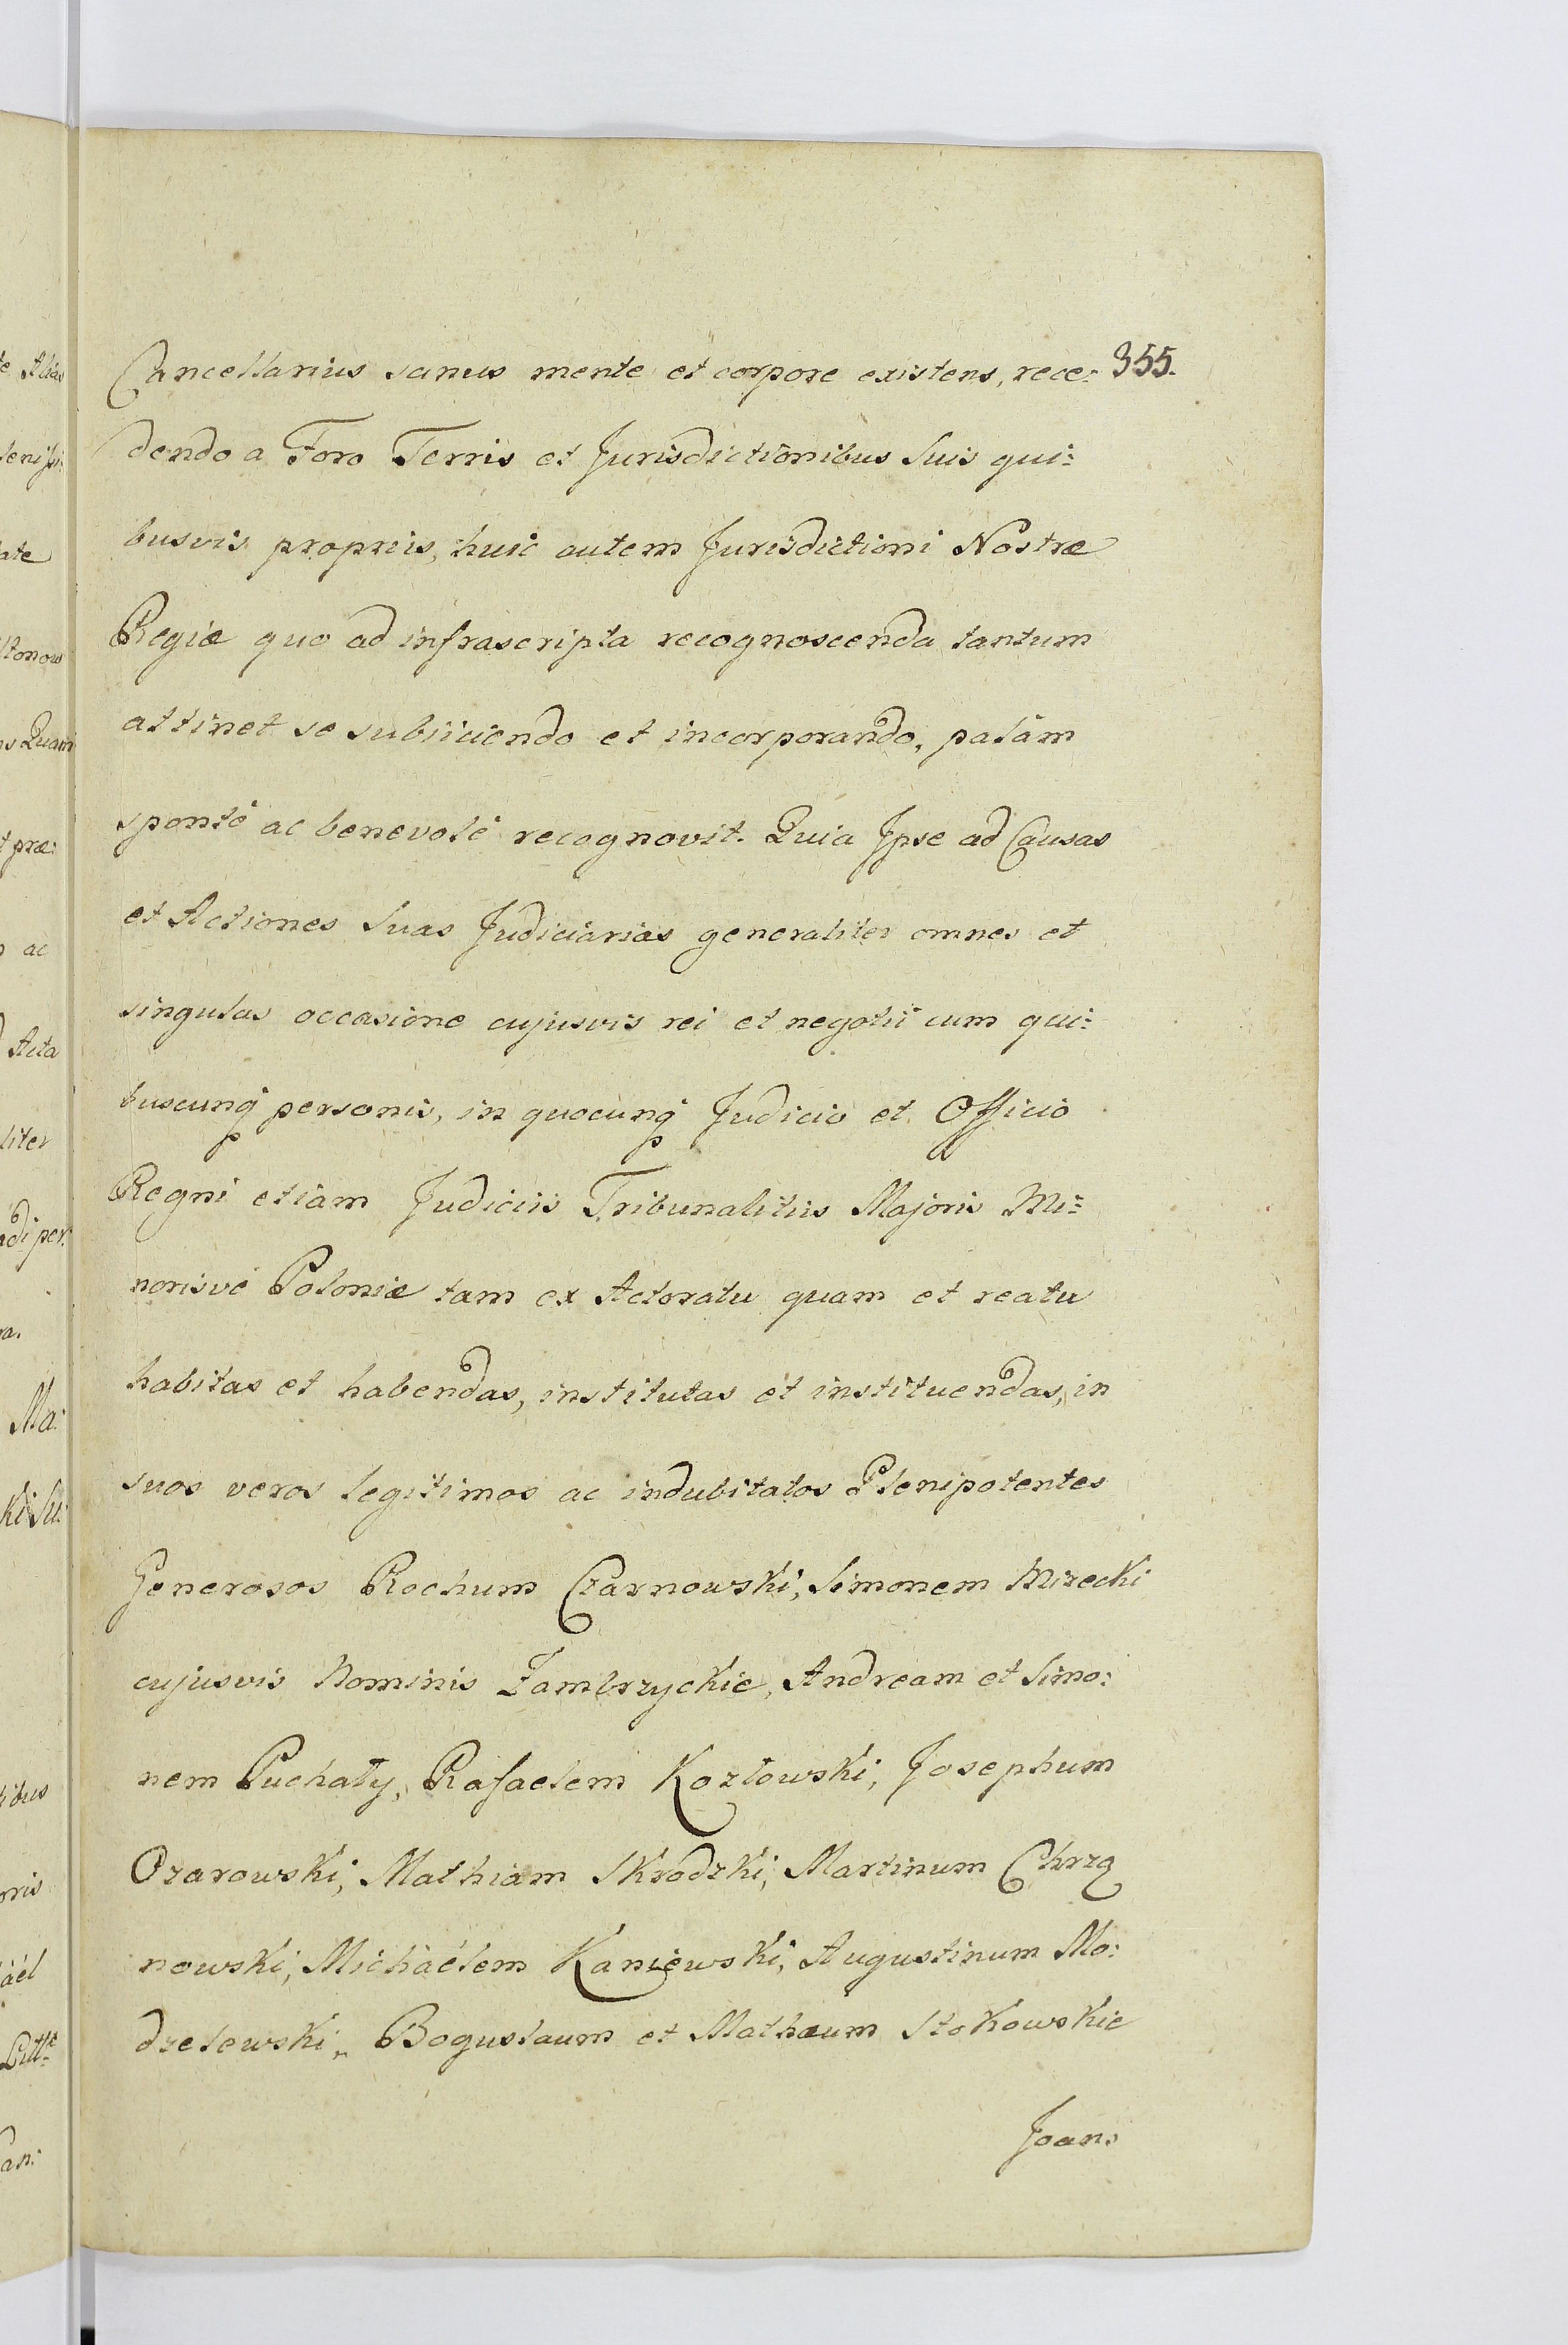 355.
Cancellarius sanus mente et corpore existens, rece:
dendo a Foro Terris et Jurisdictionibus Suis qui:
busvis propriis, huic autem Jurisdictioni Nostræ
Regiæ quo ad infrascripta recognoscenda tantum
attinet se subiiciendo et incorporando, palàm
spontè ac benevolè recognovit. Quia Ipse ad Causas
et Actiones Suas Judiciarias generaliter omnes et
singulas occasione cujusvis rei et negotii cum qui:
buscunq personis, in quocunq Judicio et Officio
Regni etiam Judiciis Tribunalitiis Majoris Mi:
norisvè Poloniæ tam ex Actoratu quam et reatu
habitas et habendas, institutas et instituendas, in
suos veros legitimos ac indubitatos Plenipotentes
Generosos Rochum Czarnowski, Simonem Mirecki
cujusvis Nominis Zambrzyckie, Andream et Simo:
nem Puchały, Rafaelem Kozłowski, Josephum
Ozarowski, Mathiam Skrodzki, Martinum Chrzą
nowski, Michaélem Kaniewski, Augustinum Mo:
dzelewski, Boguslaum et Mathæum Stokowskie
Joan:
te Alias
lenipo:
ate
ns Quam
t præ:
ac
Acta
liter
di per:
ra.
Ma:
ki Su:
ibus
oris
aél
Litt
an: